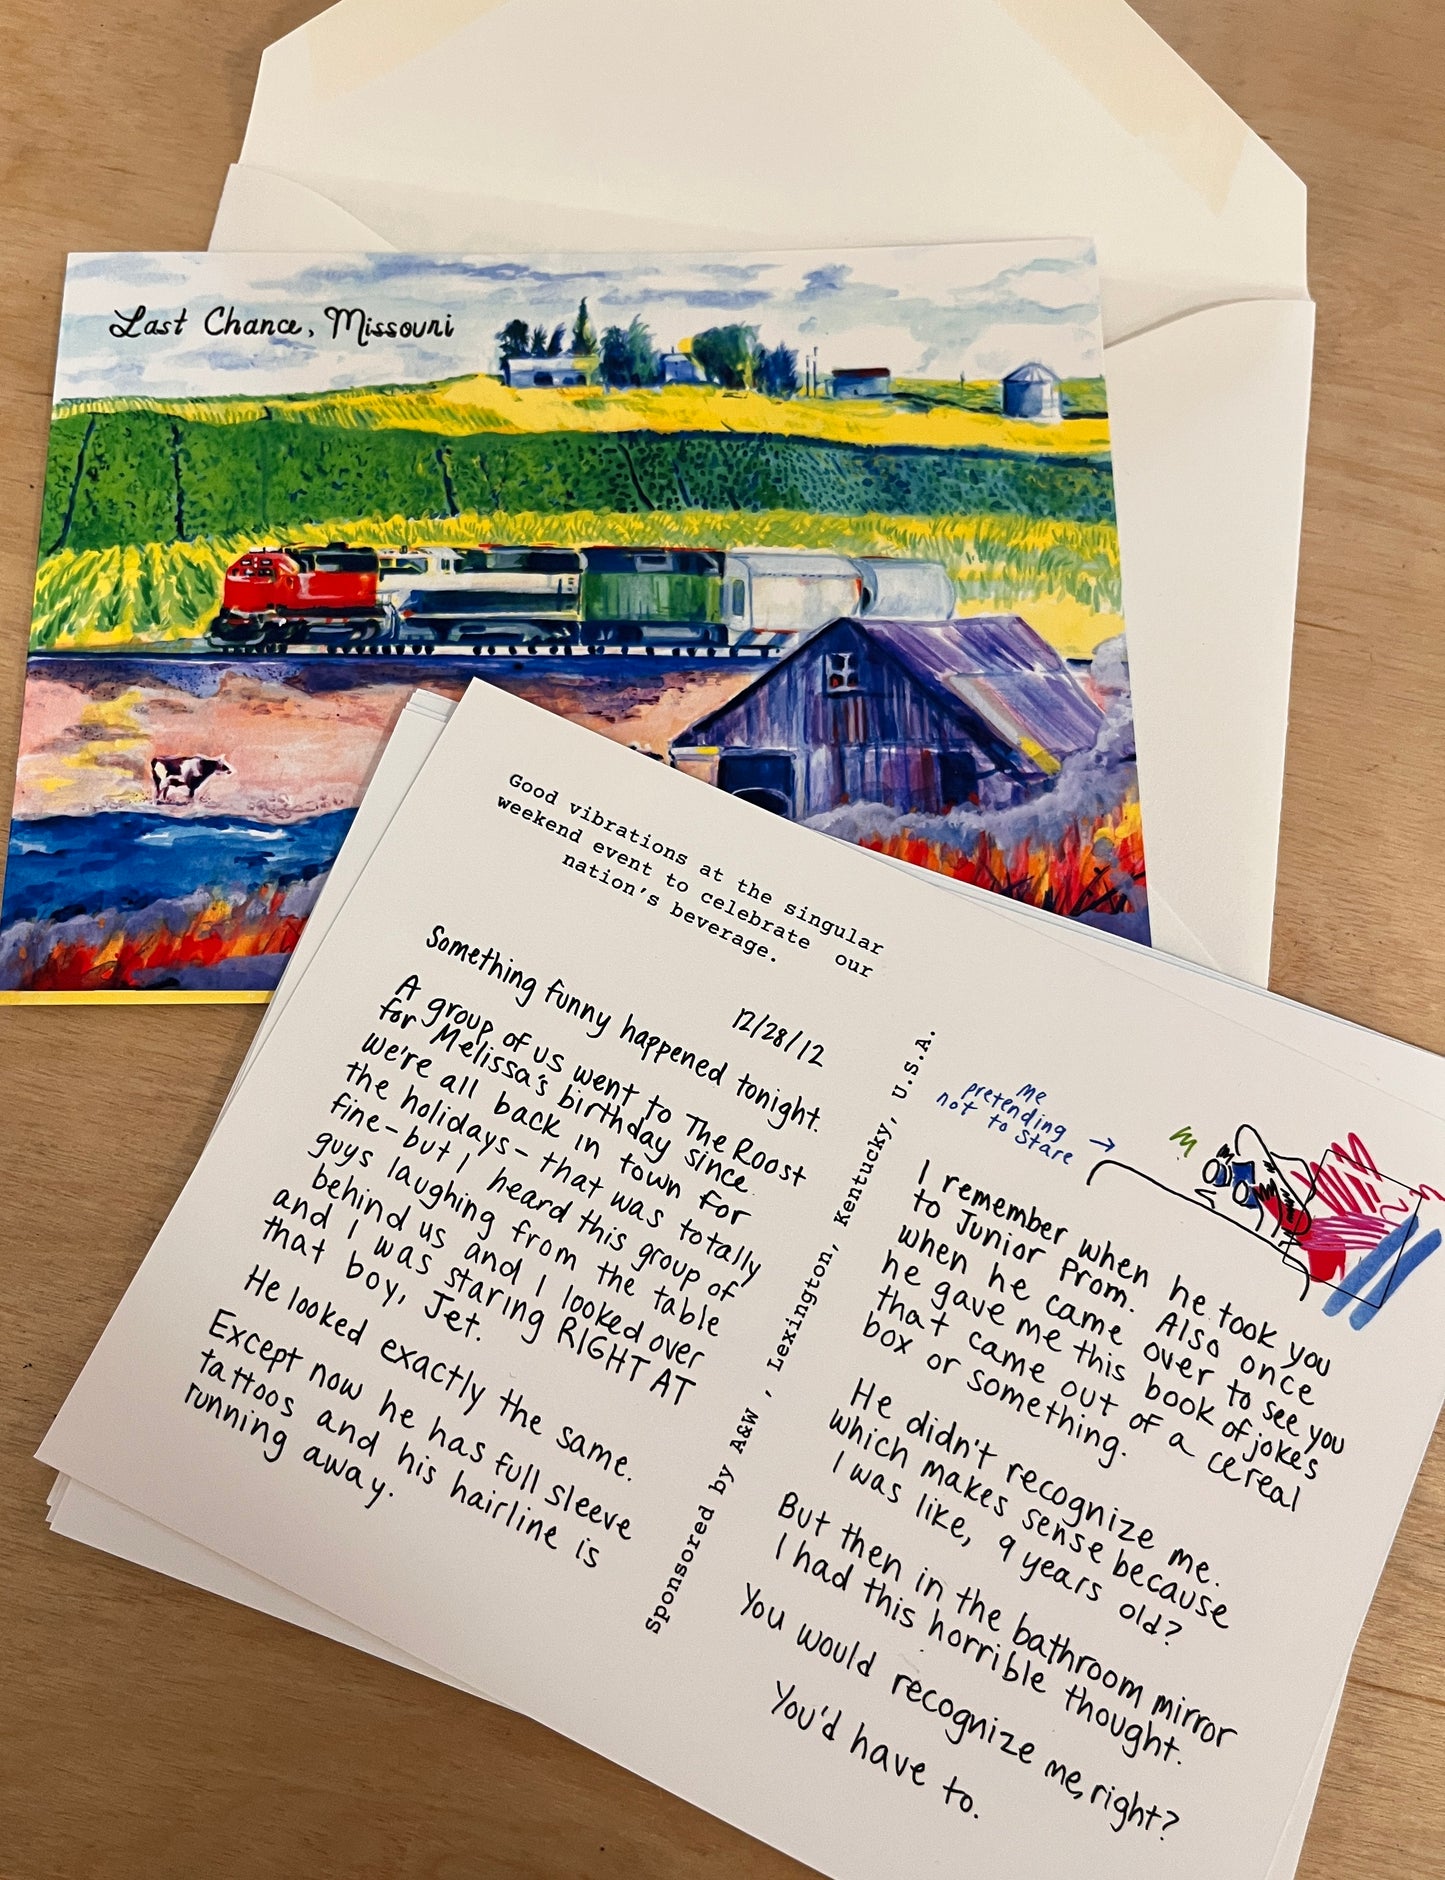 Last Chance, Missouri
Good vibrations at the singular
weekend event to celebrate our
nation's beverage.
12/28/12
Something funny happened tonight.
A group of us went to The Roost
for Melissa's birthday since
we're all back in town for
the holidays - that was totally
fine - but I heard this group of
guys laughing from the table
behind us and I looked over
and I was staring RIGHT AT
that boy, Jet.
He looked exactly the same.
Except now he has full sleeve
tattoos and his hairline is
running away.
Sponsored by A&W , Lexington, Kentucky, U.S.A.
me
pretending →
not to stare
I remember when he took you
to Junior Prom. Also once
when he came over to see you
he gave me this book of jokes
that came out of a cereal
box or something.
He didn't recognize me.
which makes sense because
I was like, 9 years old?
But then in the bathroom mirror
I had this horrible thought.
You would recognize me, right?
You'd have to.